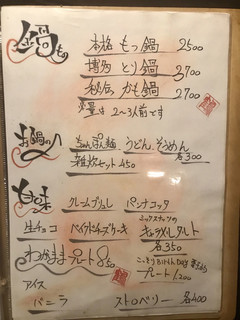 鍋もの
本格 もつ鍋 2500
博多 とり鍋 3700
秘伝 かも鍋 2700
分量は 2〜3人前です
お鍋の
ちゃんぽん麺 うどん、そうめん
各300
雑炊セット 450
甘味
クレームブリュレ パンナコッタ
生チョコ ベイクドチーズケーキ
ミックスナッツの
キャラメルタルト
各350
わがままプレート 850
プレート 1,200
アイス
バニラ ストロベリー 各400